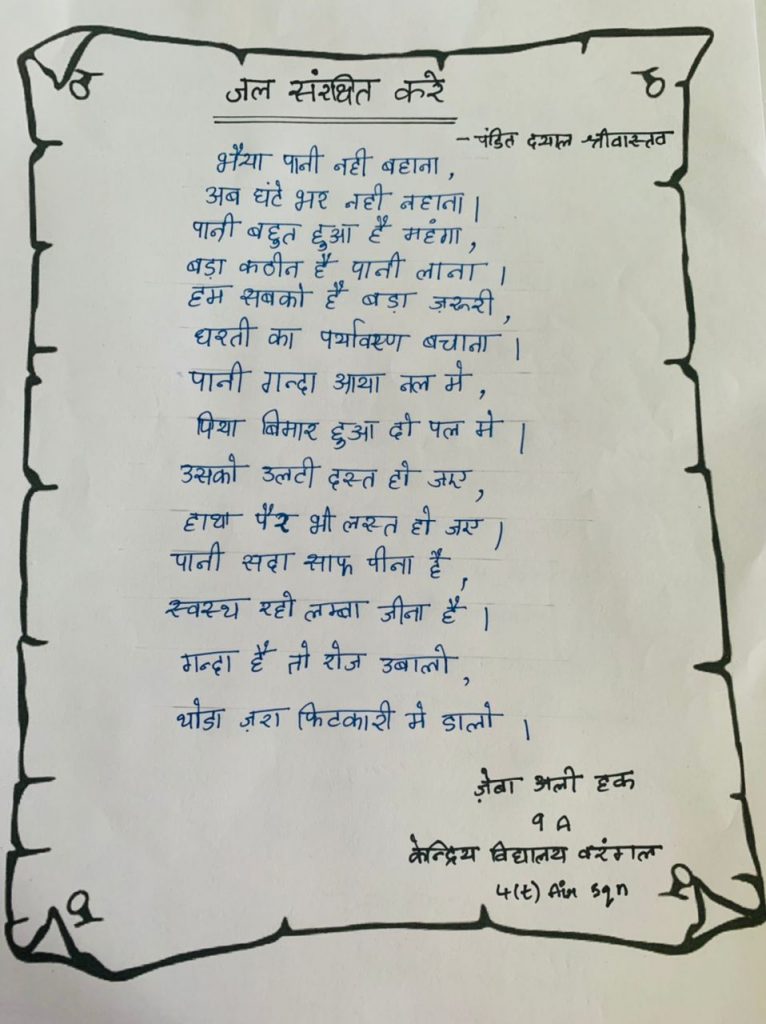 जल संरक्षित करे
-पंडित दयाल श्रीवास्तव
भैया पानी नही बहाना,
अब घंटे भर नही नहाना।
पानी बहुत हुआ है महंगा,
बड़ा कठीन है पानी लाना।
हम सबको है बड़ा ज़रूरी,
धरती का पर्यावरण बचाना।
पानी गन्दा आया नल मे,
पिया बिमार हुआ दो पल मे।
उसको उलटी दस्त हो जाए,
हाथा पैर भी लस्त हो जाए।
पानी सदा साफ पीना है,
स्वस्थ रहो लम्बा जीना है।
गन्दा है तो रोज उबालो,
थोडा ज़रा फिटकारी मे डालो।
ज़ेबा अली हक
9 A
केन्द्रिय विद्यालय वरंगल
4(t) Air Sqn